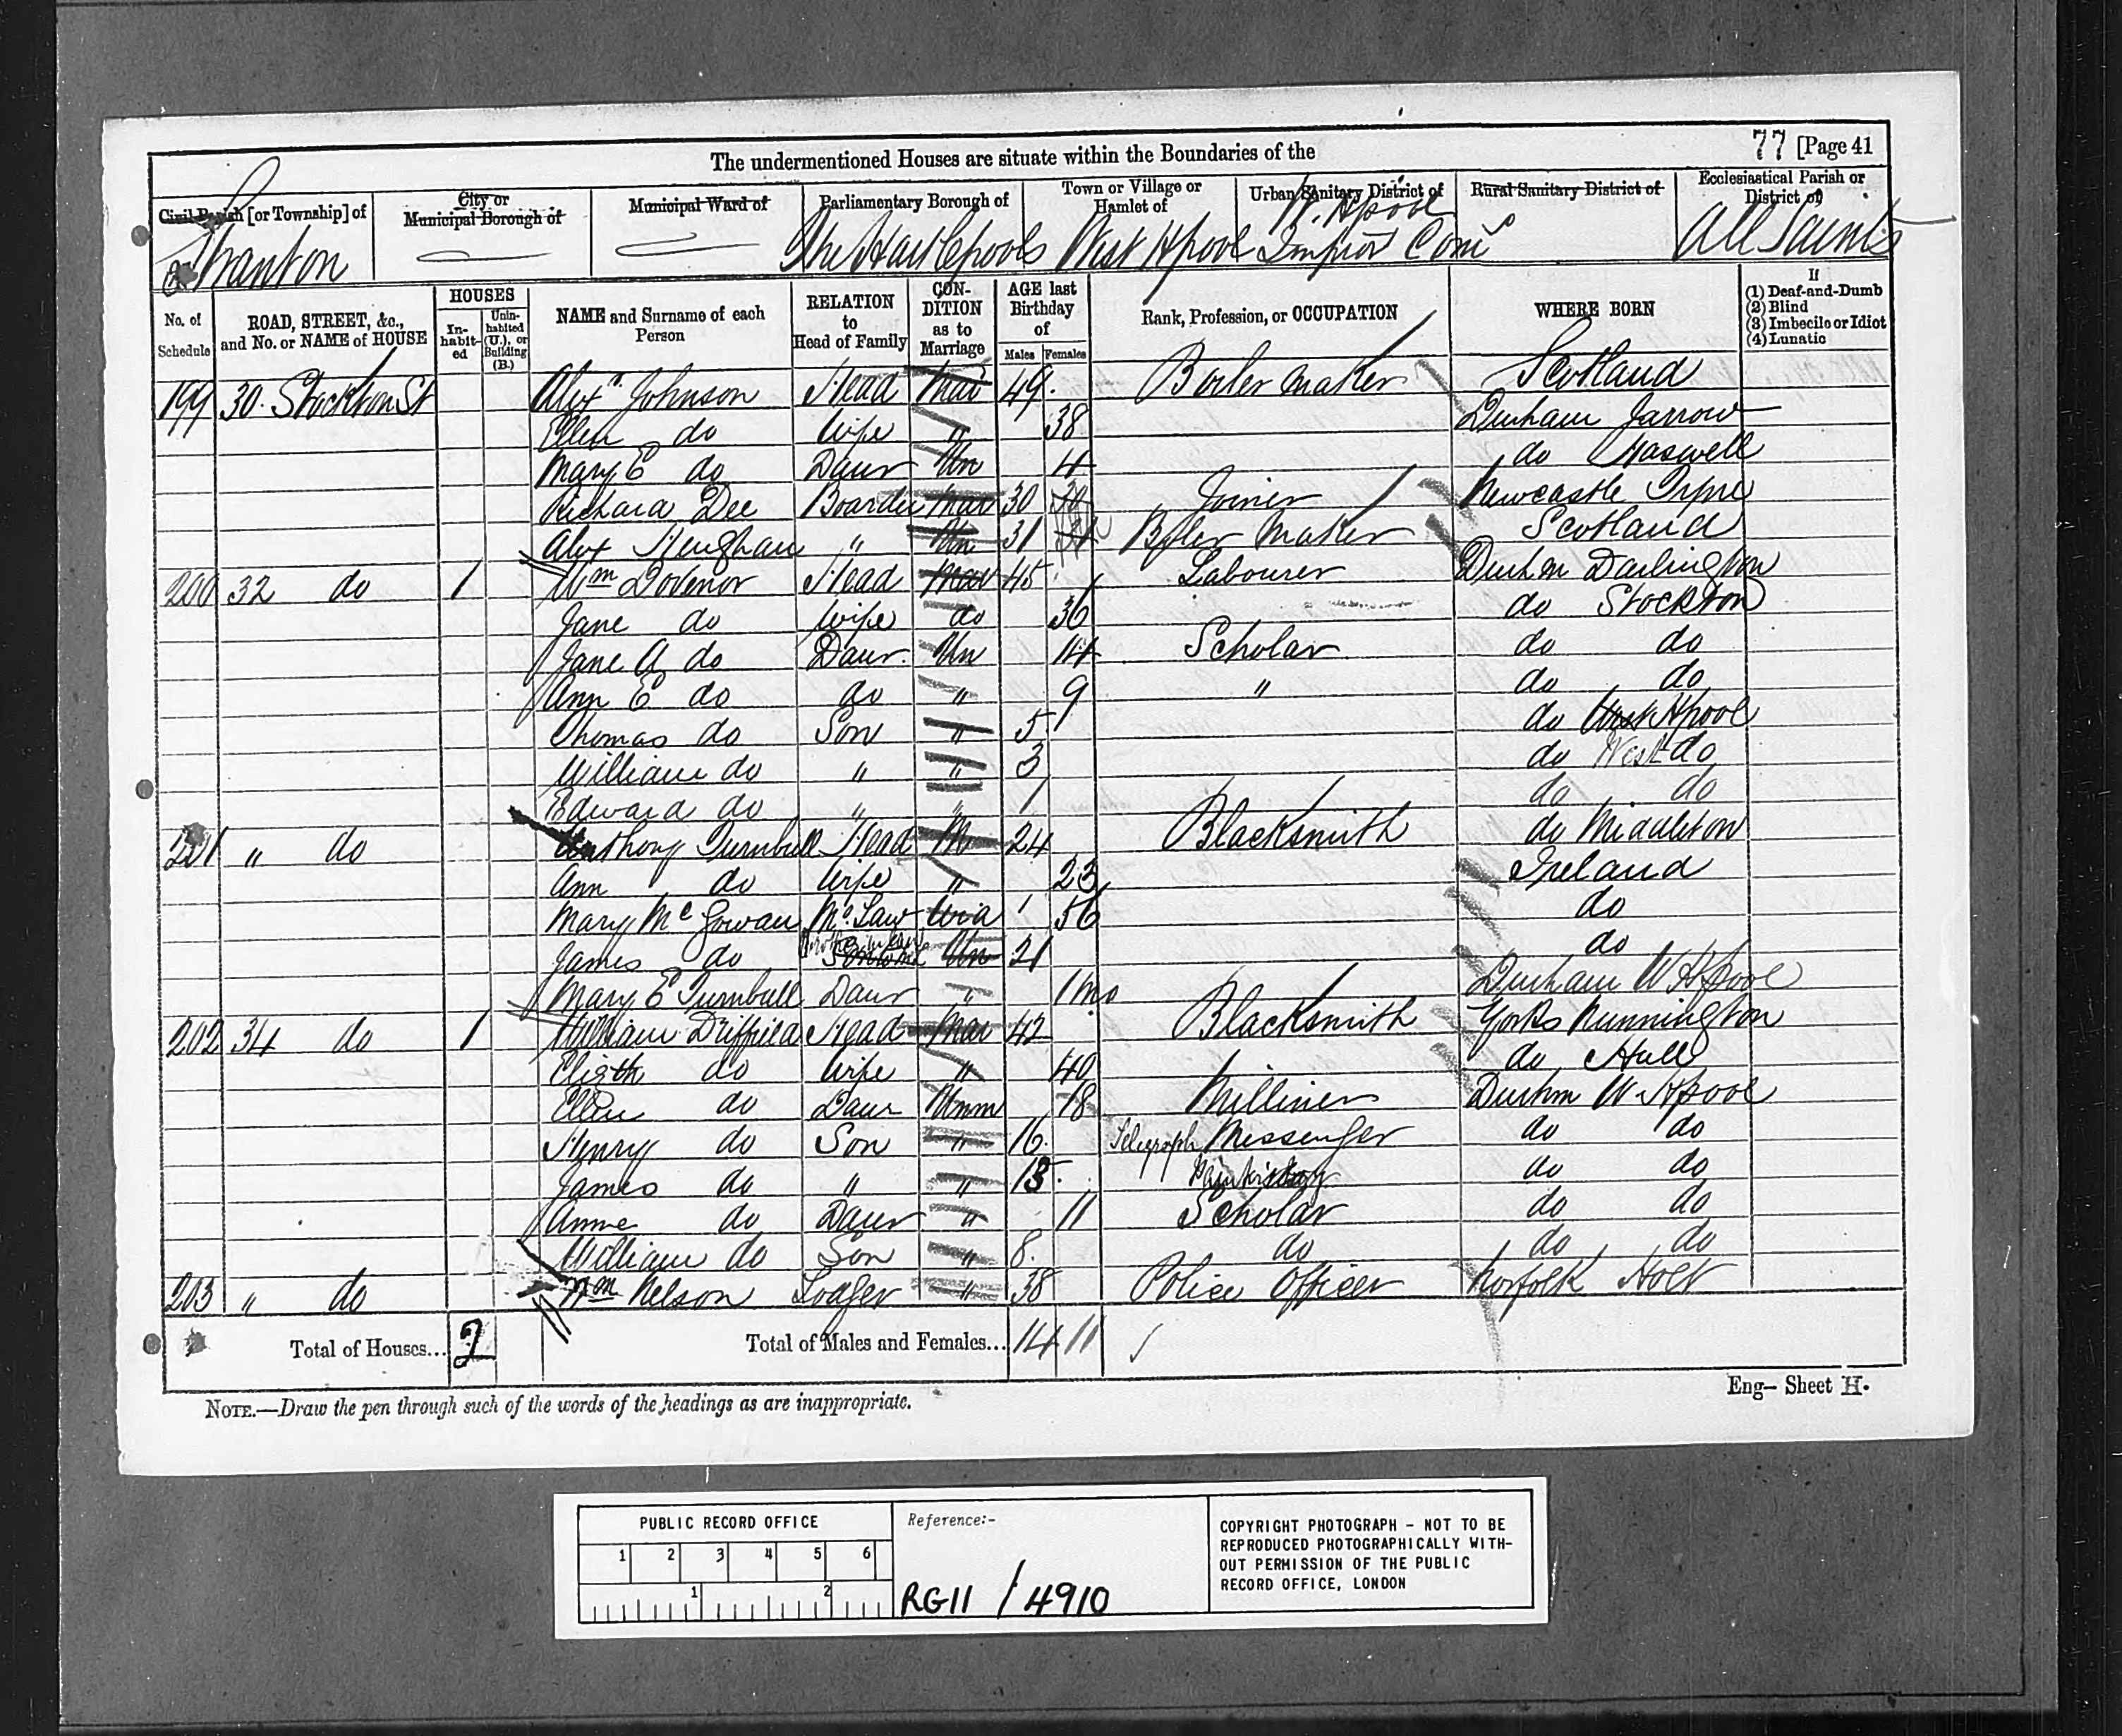 The undermentioned Houses are situate within the Boundaries of the
77 [Page 41
Civil Parish [or Township] of
City or Municipal Borough of
Municipal Ward of
Parliamentary Borough of
Town or Village or Hamlet of
Urban Sanitary District of
Rural Sanitary District of
Ecclesiastical Parish or District of
Stranton
The Hartlepools
West Hpool
W. Hpool
Impro Com
All Saints
No. of Schedule
ROAD, STREET, &c., and No. or NAME of HOUSE
HOUSES
In-habit-ed
Unin-habited (U.), or Building (B.)
NAME and Surname of each Person
RELATION to Head of Family
CON-DITION as to Marriage
AGE last Birthday of
Males Females
Rank, Profession, or OCCUPATION
WHERE BORN
If
(1) Deaf-and-Dumb
(2) Blind
(3) Imbecile or Idiot
(4) Lunatic
199 30. Stockton St Alexr. Johnson Head Mar 49. Boiler Maker Scotland
Ellen do Wife " 38 Durham Jarrow
Mary E do Daur Un 4 do Haswell
Richard Dee Boarder Mar 30 Joiner Newcastle
Alex " Un 31 Boiler Maker Scotland
200 32 do 1 Wm Dovenor Head Mar 45 Labourer Durhm Darlington
Jane do Wife do 36 do Stockton
Jane A do Daur. Un 14 Scholar do do
Ann E do do " 9 " do do
Thomas do Son " 5 do West Hpool
William do " " 3 do West do
Edward do " " 1 do do
201 " do Anthony Turnbull Head M 24 Blacksmith do Middleton
Ann do Wife " 23 Ireland
Mary Mc Gowan Mo. Law Wid 56 do
James do Brother in Law Un 21 do
Mary E Turnbull Daur " 1 mo Durham W Hpool
202 34 do 1 William Driffield Head Mar 42 Blacksmith Yorks Nunnington
Elizth do Wife " 40 do Hull
Ellen do Daur Unm 18 Milliner Durhm W Hpool
Henry do Son " 16. Telegraph Messenger do do
James do " " 13. do do
Annie do Daur " 11 Scholar do do
William do Son " 8. do do do
203 " do Wm Nelson Lodger " 38 Police Officer Norfolk Holt
Total of Houses... 2 Total of Males and Females... 14 11
NOTE.—Draw the pen through such of the words of the headings as are inappropriate.
Eng— Sheet H.
PUBLIC RECORD OFFICE
1 2 3 4 5 6
1 2
Reference:-
RG11 / 4910
COPYRIGHT PHOTOGRAPH - NOT TO BE
REPRODUCED PHOTOGRAPHICALLY WITH-
OUT PERMISSION OF THE PUBLIC
RECORD OFFICE, LONDON